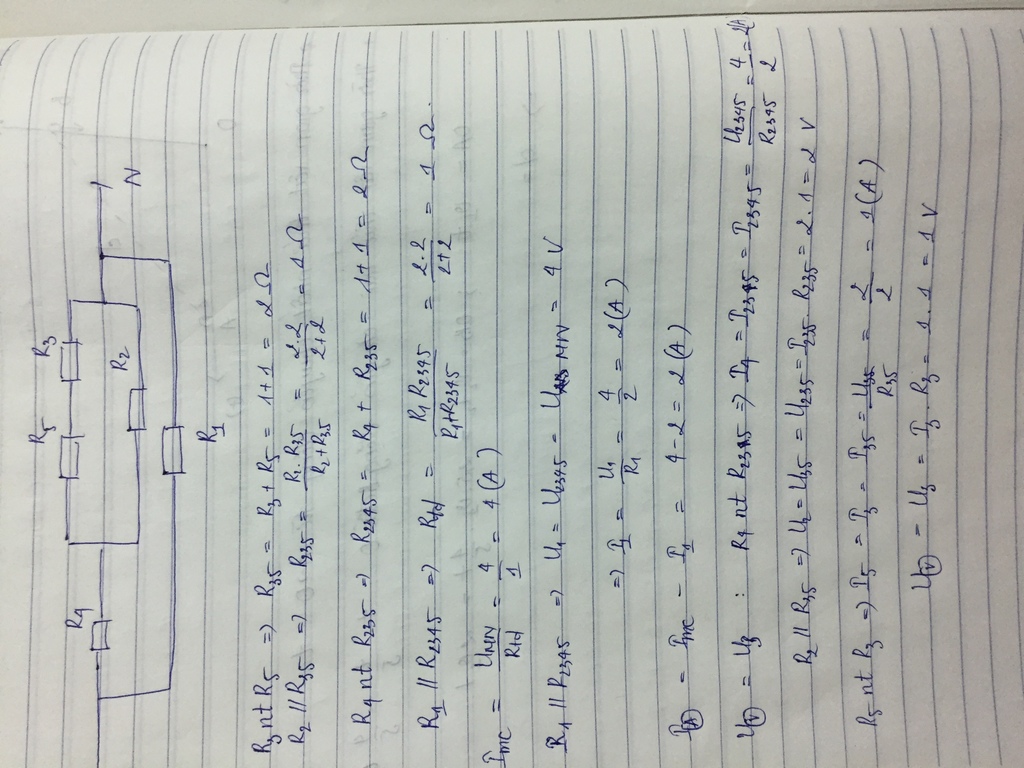 R5 R3
R4
R2
N
R1
R3 nt R5 => R35 = R3 + R5 = 1+1 = 2 Ω
R2 // R35 => R235 = R2.R35 / R2+R35 = 2.2 / 2+2 = 1 Ω
R4 nt R235 => R2345 = R4 + R235 = 1+1 = 2 Ω
R1 // R2345 => Rtđ = R1 R2345 / R1+R2345 = 2.2 / 2+2 = 1 Ω.
Imc = UMN / Rtđ = 4 / 1 = 4 (A)
R1 // R2345 => U1 = U2345 = UMN = 4 V
=> I1 = U1 / R1 = 4 / 2 = 2 (A)
IA = Imc - I1 = 4-2 = 2 (A)
UV = U3 : R4 nt R235 => I4 = I235 = I2345 = U2345 / R2345 = 4 / 2 = 2(A
R2 // R35 => U2 = U35 = U235 = I235. R235 = 2.1 = 2 V
R5 nt R3 => I5 = I3 = I35 = U35 / R35 = 2 / 2 = 1(A)
UV = U3 = I3. R3 = 1.1 = 1 V